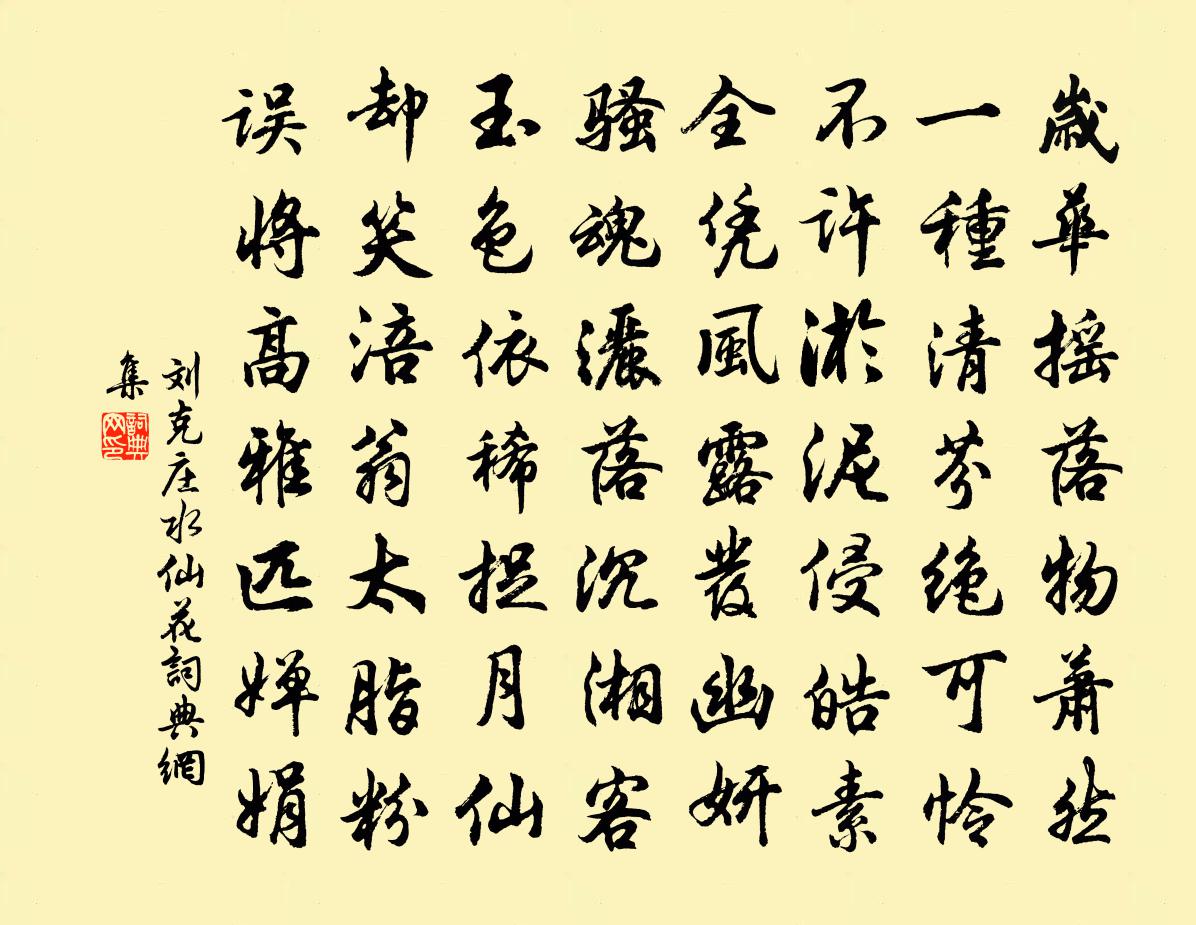 歲華摇落物萧然
一種清芬绝可怜
不许淤泥侵皓素
全凭風露發幽妍
骚魂灑落沉湘客
玉色依稀捉月仙
却笑涪翁太脂粉
误将高雅匹婵娟
刘克庄水仙花詞典網
集
詞典
网印